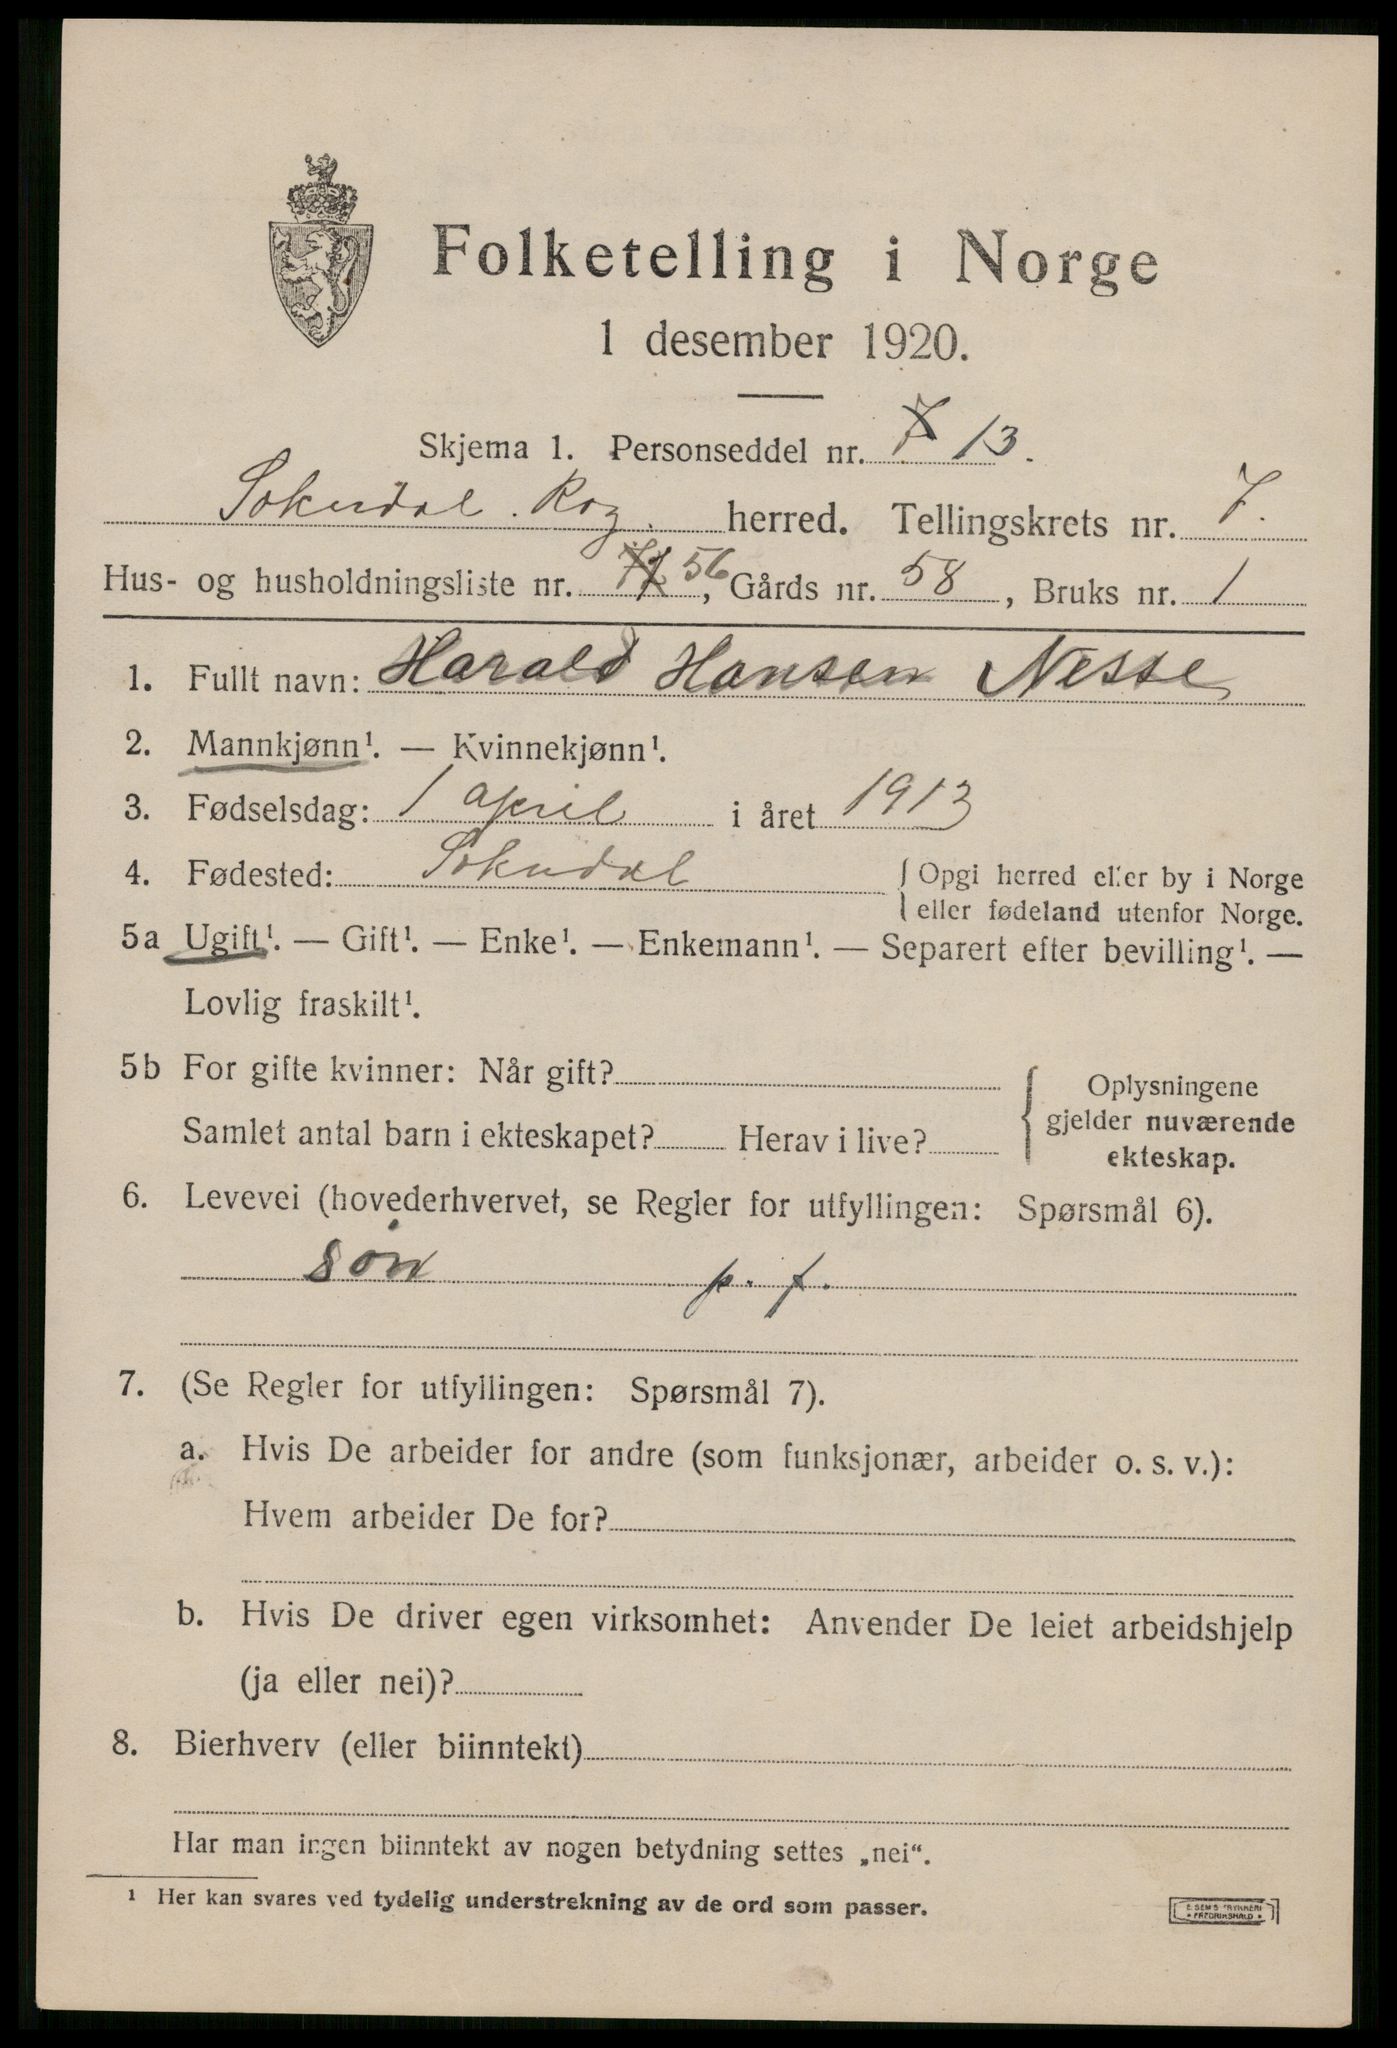 Folketelling i Norge
1 desember 1920.
Skjema 1. Personseddel nr. 7 13.
Sokndal. Rog. herred. Tellingskrets nr. 7.
Hus- og husholdningsliste nr. 56, Gårds nr. 58, Bruks nr. 1
1. Fullt navn: Harald Hansen Nesse
2. Mannkjønn¹. — Kvinnekjønn¹.
3. Fødselsdag: 1 april i året 1913
4. Fødested: Sokndal { Opgi herred eller by i Norge
eller fødeland utenfor Norge.
5a Ugift¹. — Gift¹. — Enke¹. — Enkemann¹. — Separert efter bevilling¹. —
Lovlig fraskilt¹.
5b For gifte kvinner: Når gift?
Samlet antal barn i ekteskapet? Herav i live?
{ Oplysningene
gjelder nuværende
ekteskap.
6. Levevei (hovederhvervet, se Regler for utfyllingen: Spørsmål 6).
søn p. f.
7. (Se Regler for utfyllingen: Spørsmål 7).
a. Hvis De arbeider for andre (som funksjonær, arbeider o. s. v.):
Hvem arbeider De for?
b. Hvis De driver egen virksomhet: Anvender De leiet arbeidshjelp
(ja eller nei)?
8. Bierhverv (eller biinntekt)
Har man ingen biinntekt av nogen betydning settes „nei“.
¹ Her kan svares ved tydelig understrekning av de ord som passer.
E. SEM'S TRYKKERI
* FREDRIKSHALD *